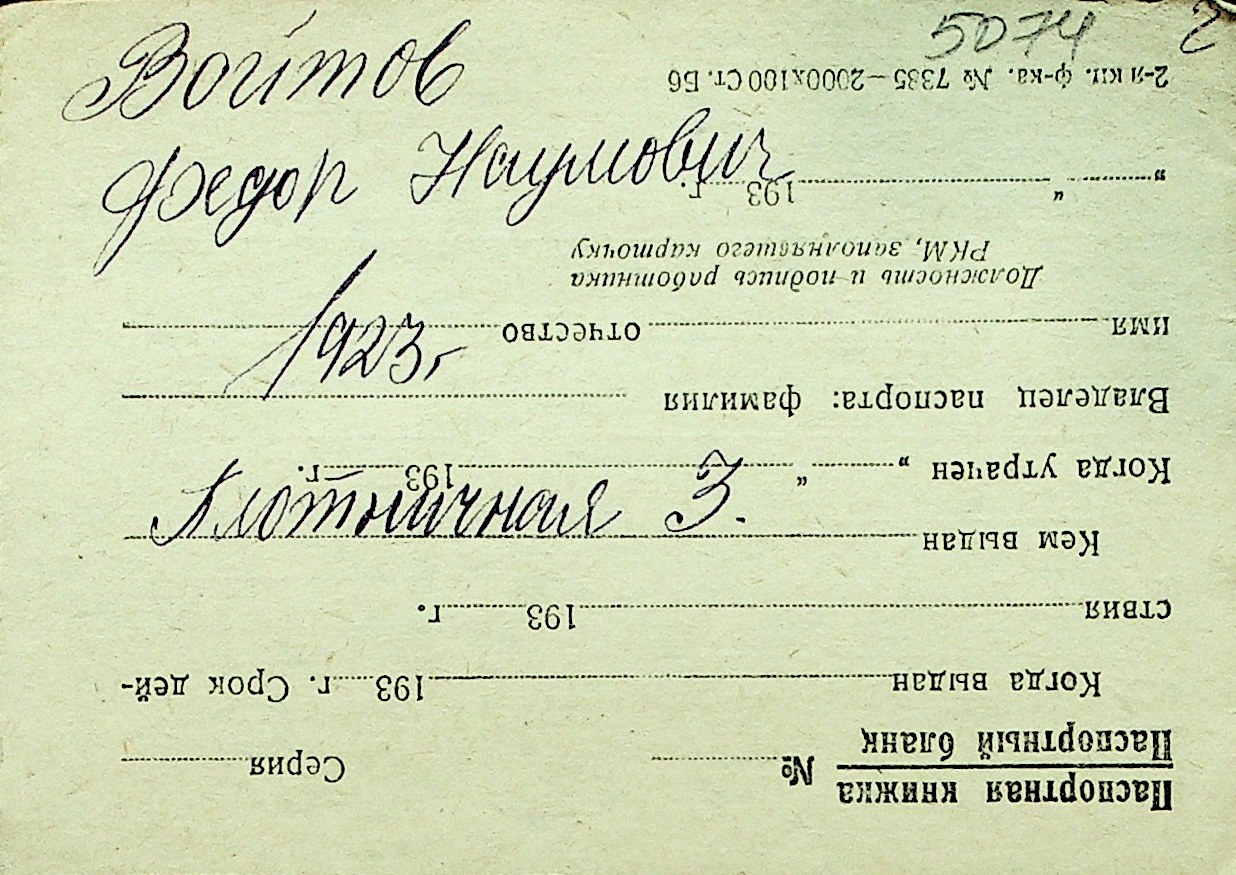 5074 2
Войтов
Федор Наумович
1923 г.
Плотничная 3.
Паспортная книжка
Паспортный бланк
№ Серия
Когда выдан 193 г. Срок дей-
ствия 193 г.
Кем выдан
Когда утрачен „ “ 193 г.
Владелец паспорта: фамилия
имя отчество
Должность и подпись работника
РКМ, заполнявшего карточку
„ “ 193 г.
2-я кп. ф-ка. № 7335—2000х100 Ст. Б6